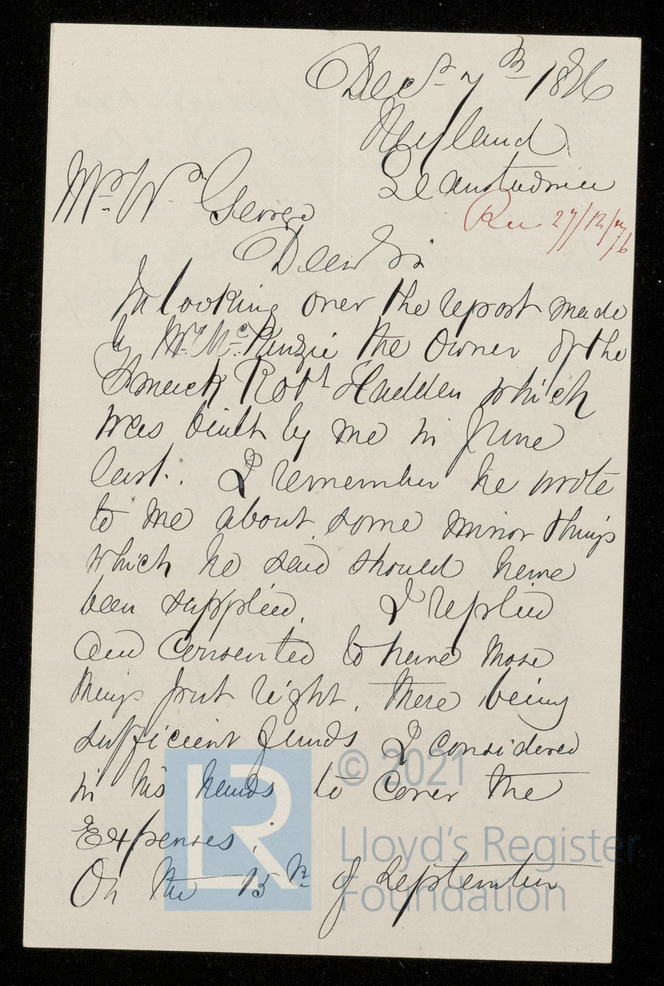 Decr 7th 1876
Neyland
Mr Wm George
Rec 27/12/76
Dear Sir
In looking over the report made
by Mr McKenzie the owner of the
Smack Robt Hadden which
was built by me in June
last. I remember he wrote
to me about some minor things
which he said should have
been supplied I replied
and consented to have those
things put right, there being
sufficient funds I considered
in his hands to cover the
Expenses;
On the 15th of September
© 2021
LR
Lloyd's Register
Foundation